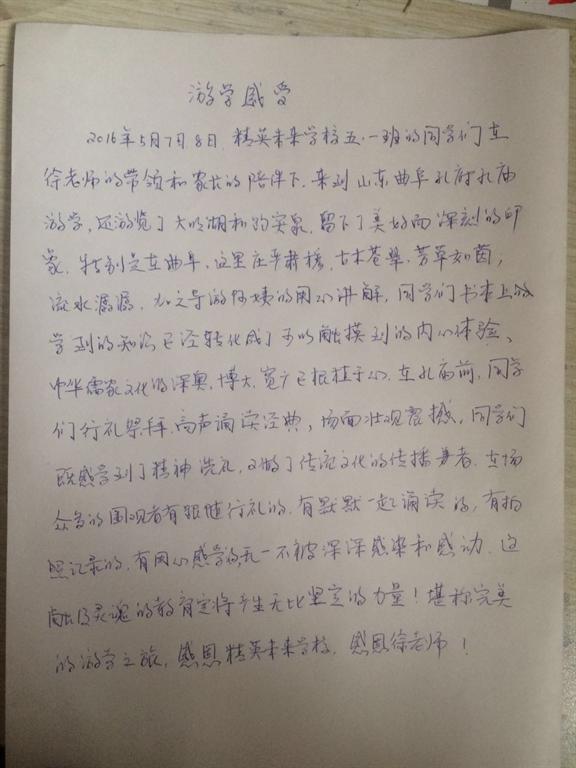 游学感受
2016年5月7日8日，精英未来学校五·一班的同学们在
徐老师的带领和家长的陪伴下，来到山东曲阜孔府孔庙
游学，还游览了大明湖和趵突泉，留下了美好而深刻的印
象，特别是在曲阜，这里庄严肃穆，古木苍翠，芳草如茵；
流水潺潺，加之导游阿姨的用心讲解，同学们书本上的
学到的知识已经转化成了可以触摸到的内心体验、
中华儒家文化的深奥，博大，宽广已根植于心，在孔庙前，同学
们行礼祭拜，高声诵读经典，场面壮观震撼，同学们
既感受到了精神洗礼，又做了传统文化的传播者，在场
众多的围观者有跟随行礼的，有默默一起诵读的，有拍
照记录的，有用心感受的无一不被深深感染和感动，这
触及灵魂的教育定将产生无比坚定的力量！堪称完美
的游学之旅，感恩精英未来学校，感恩徐老师！